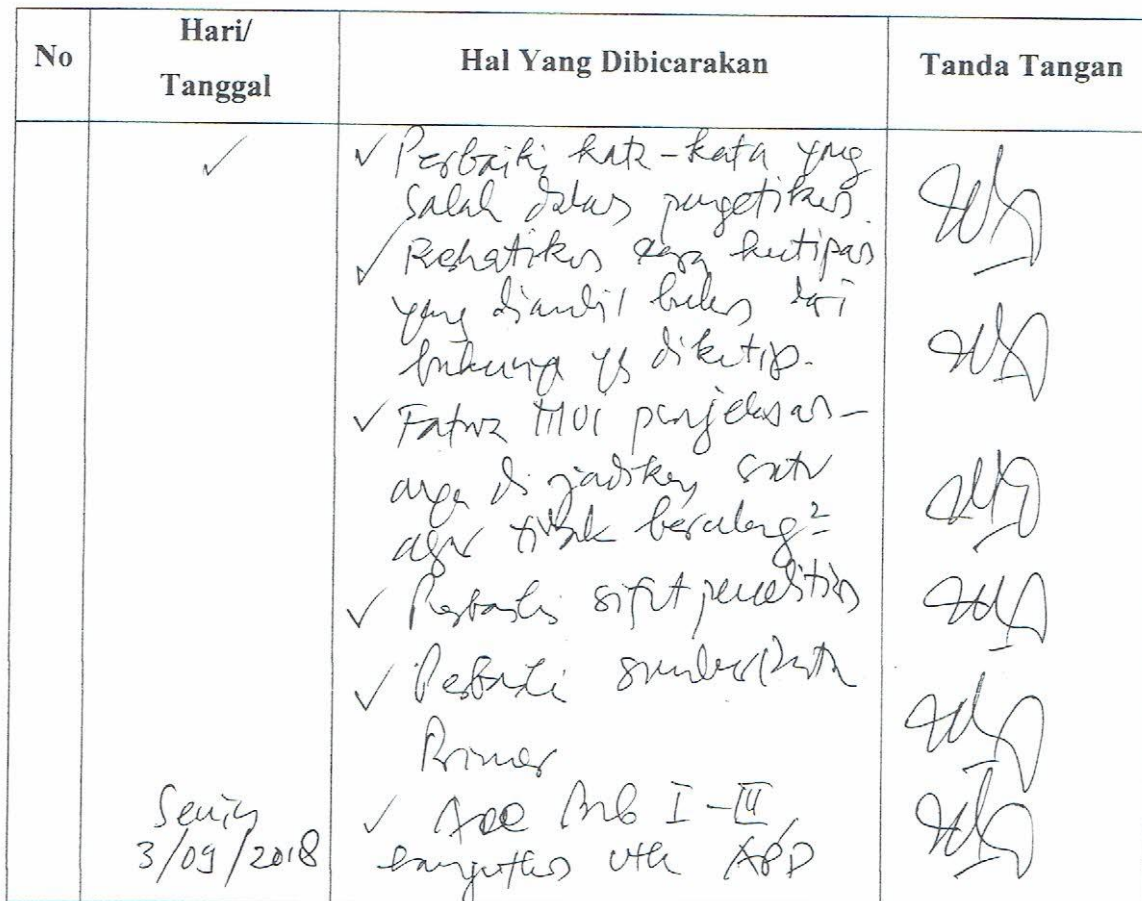 No
Hari/
Tanggal
Hal Yang Dibicarakan
Tanda Tangan
Perbaiki kata-kata yang
salah dalam pengetikan.
Perhatikan cara kutipan
yang diambil bukan dari
bukunya yg dikutip.
Fatwa MUI penjelasan-
anya di jadikan satu
agar tidak berulang²
Perbaiki sifat penelitian
Perbaiki sumber Data
Primer
Senin
3/09/2018
Acc Bab I-III,
lanjutkan utk APD